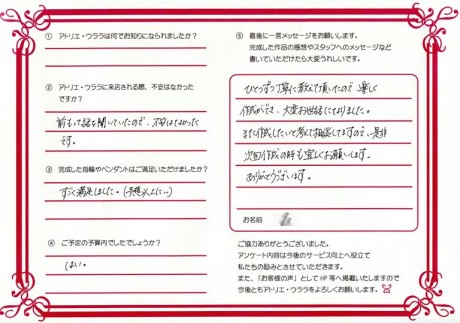 ① アトリエ・ウララは何でお知りになられましたか?
② アトリエ・ウララに来店される際、不安はなかった
ですか?
前もって話を聞いていたので、不安はなかった
です。
③ 完成した指輪やペンダントはご満足いただけましたか?
すごく満足しました。(予想以上に…)
④ ご予定の予算内でしたでしょうか?
はい。
⑤ 最後に一言メッセージをお願いします。
完成した作品の感想やスタッフへのメッセージなど
書いていただけたら大変うれしいです。
ひとつずつ丁寧に教えて頂いたので、楽しく
作成ができ、大変お世話になりました。
また作成したいと考えて相談してますので、是非
次回作成の時も宜しくお願いします。
ありがとうございます。
お名前
ご協力ありがとうございました。
アンケート内容は今後のサービス向上へ役立て
私たちの励みとさせていただきます。
また、「お客様の声」として HP 等へ掲載いたしますので
今後ともアトリエ・ウララをよろしくお願いします。